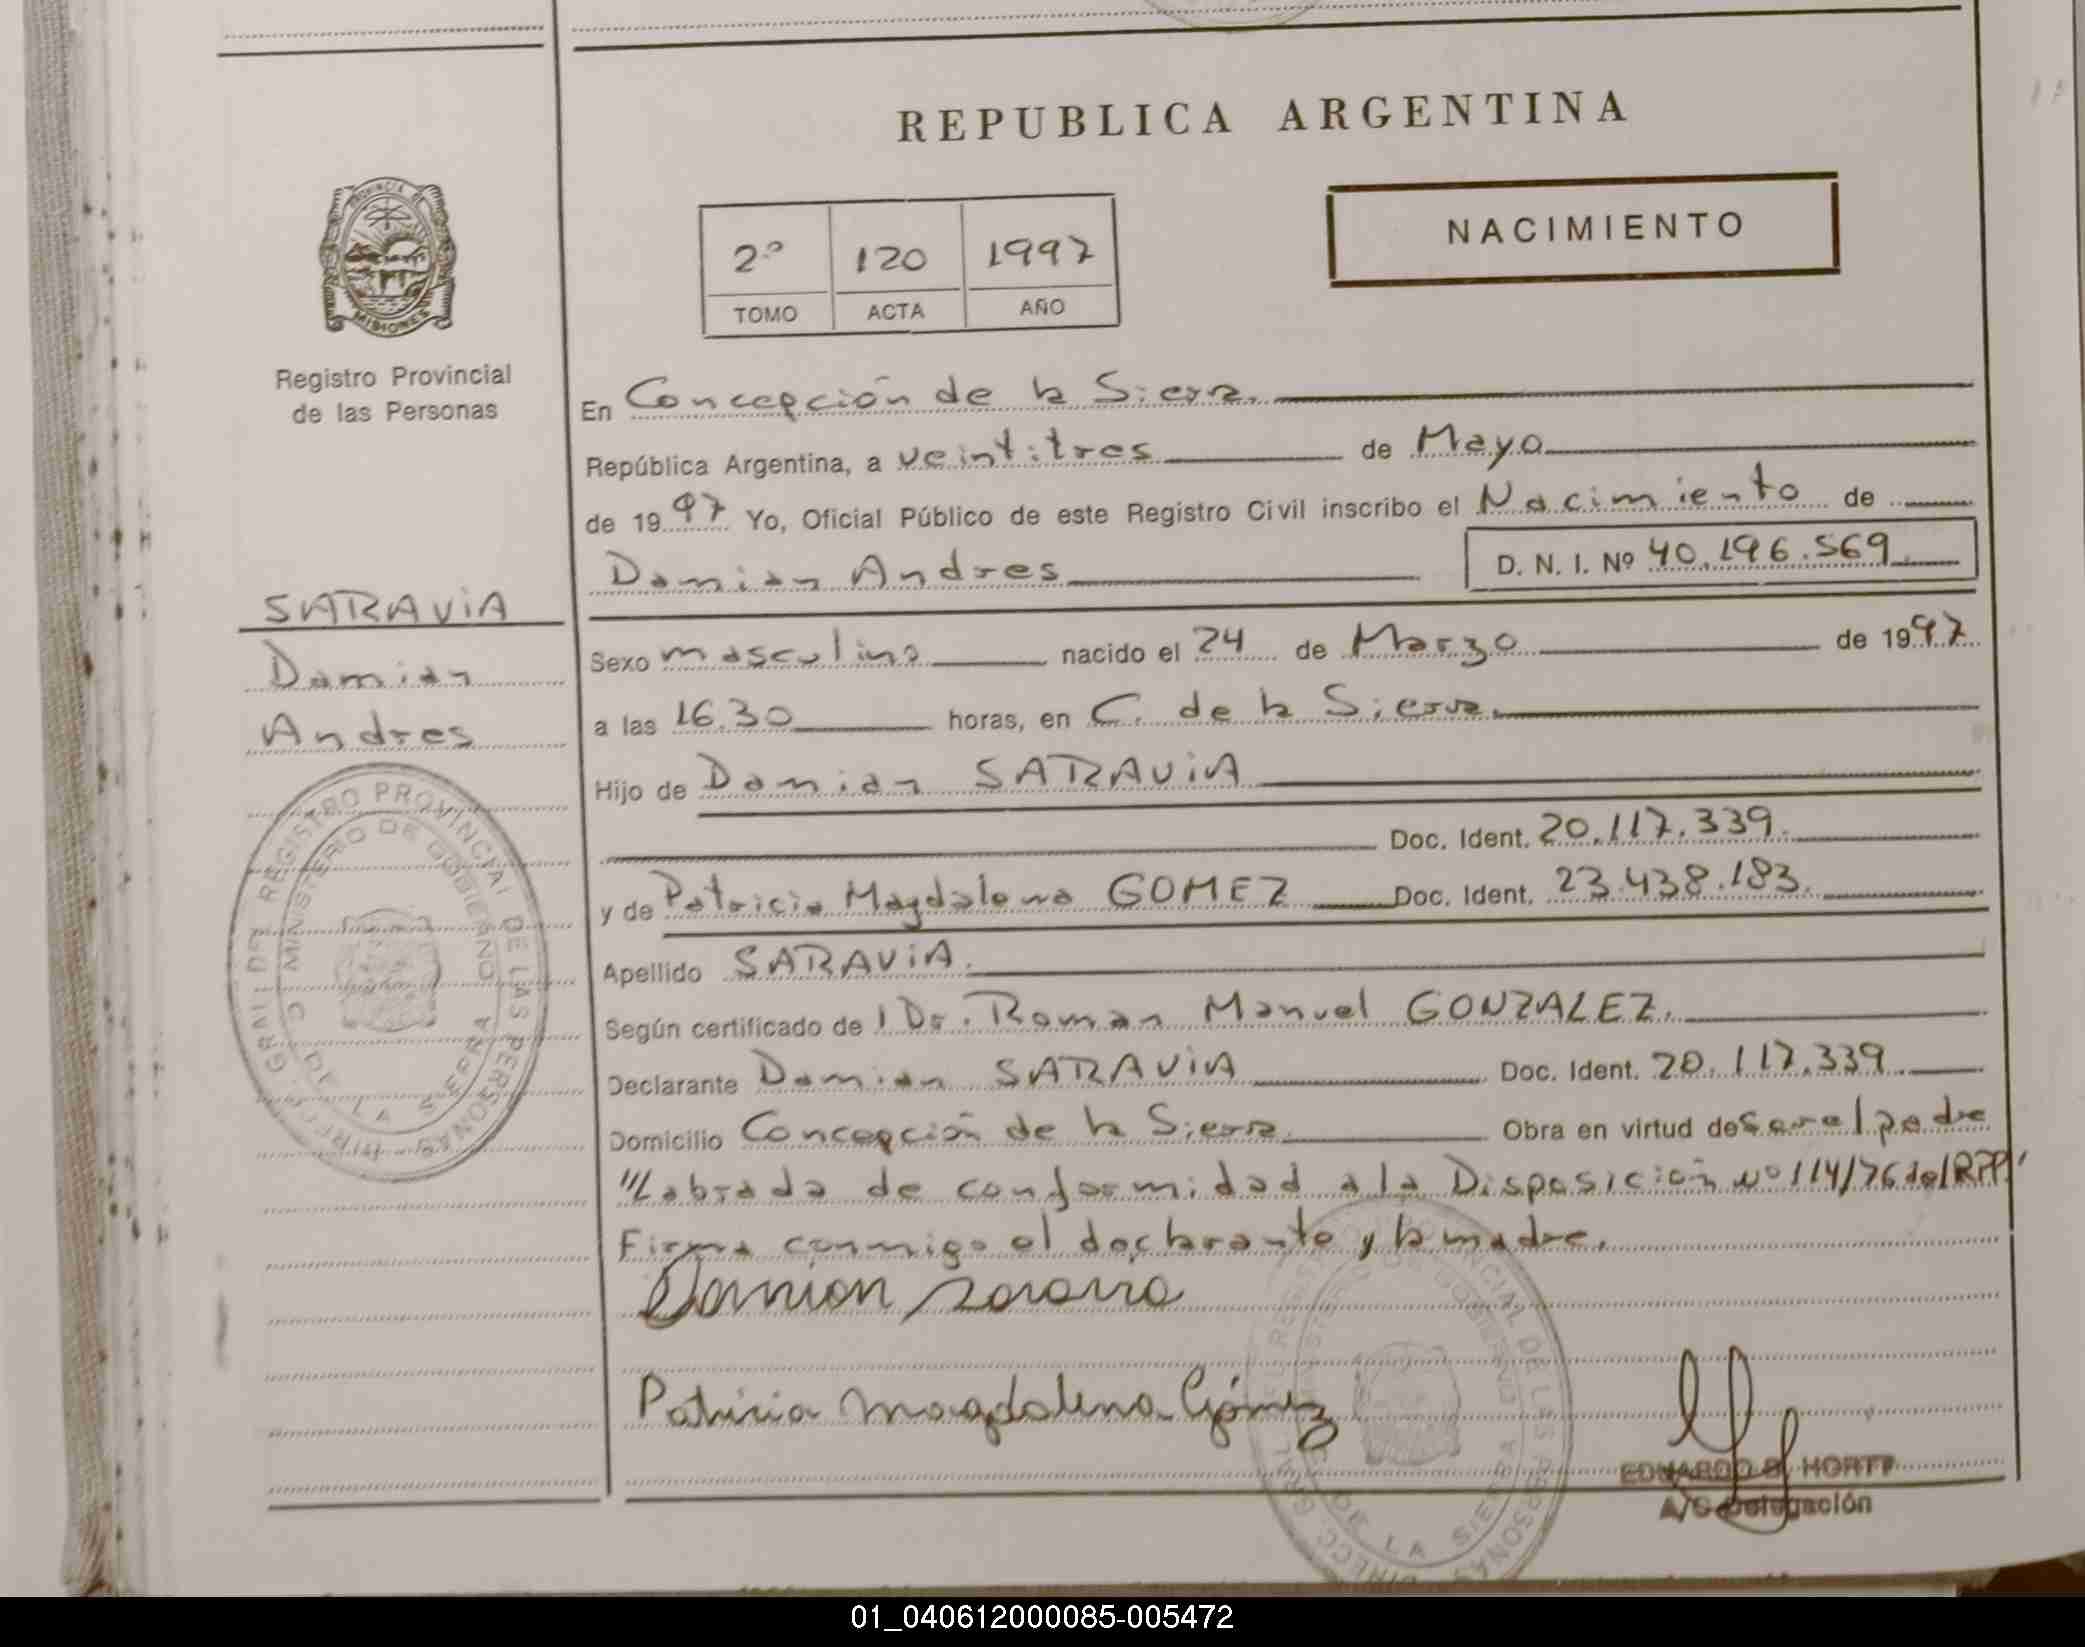 REPUBLICA ARGENTINA
PROVINCIA DE
MISIONES
Registro Provincial
de las Personas
2º 120 1997
TOMO ACTA AÑO
NACIMIENTO
En Concepción de la Sierra.
República Argentina, a veintitres de Mayo
de 1997 Yo, Oficial Público de este Registro Civil inscribo el Nacimiento de
Damian Andres D. N. I. Nº 40.196.569
SARAVIA
Damian
Andres
Sexo masculino nacido el 24 de Marzo de 1997
a las 16.30 horas, en C. de la Sierra.
Hijo de Damian SARAVIA
Doc. Ident. 20.117.339.
y de Patricia Magdalena GOMEZ Doc. Ident. 23.438.183.
Apellido SARAVIA.
Según certificado de Dr. Roman Manuel GONZALEZ.
Declarante Damian SARAVIA Doc. Ident. 20.117.339
Domicilio Concepción de la Sierra Obra en virtud de ser el padre
"Labrada de conformidad a la Disposición nº 114/76 del RPP"
Firma conmigo el declarante y la madre.
Damian Saravia
Patricia Magdalena Gómez
REGISTRO PROVINCIAL DE LAS PERSONAS
MINISTERIO DE GOBIERNO
DE LA SIERRA
REGISTRO PROVINCIAL DE LAS PERSONAS
MINISTERIO DE GOBIERNO
DE LA SIERRA
EDUARDO
A/C Delegación
01_040612000085-005472